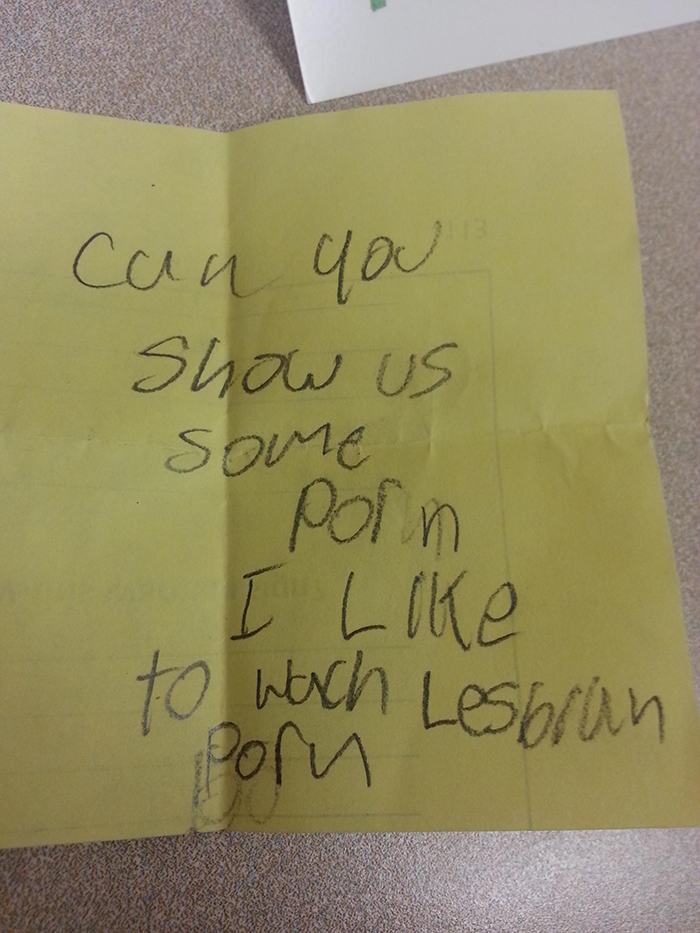 Can you
Show us
some
porn
I LIKe
to wach Lesbian
porn